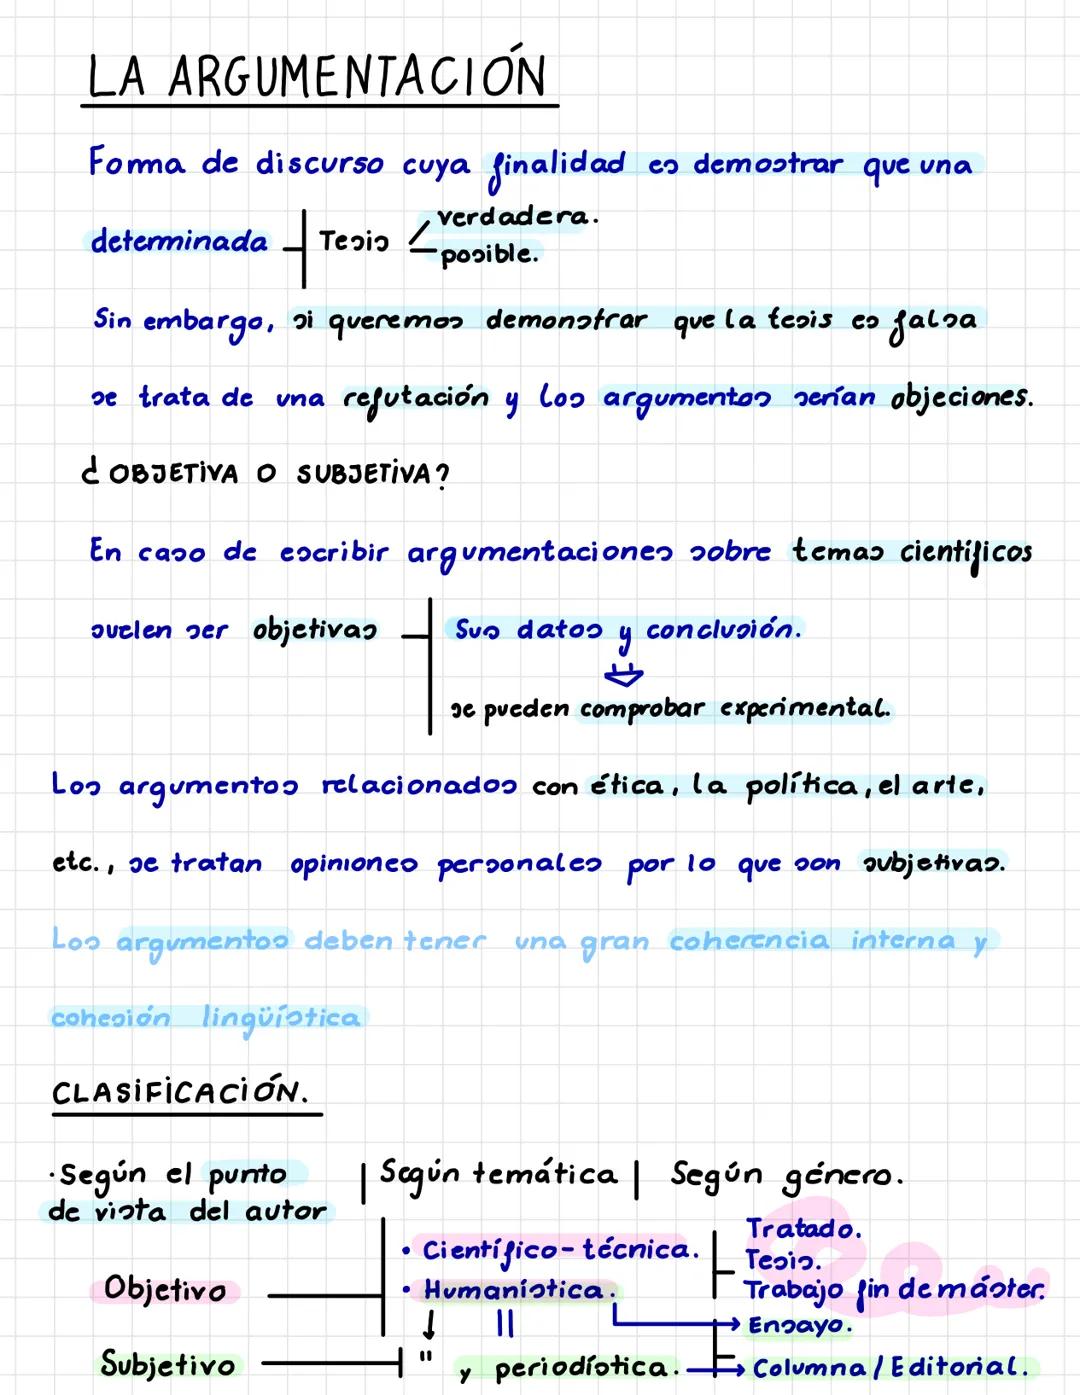 LA ARGUMENTACIÓN
Forma de discurso cuya finalidad es demostrar que una
determinada Tesis verdadera.
posible.
Sin embargo, si queremos demonstrar que la tesis es falsa
se trata de una refutación y los argumentos serían objeciones.
¿OBJETIVA O SUBJETIVA?
En caso de escribir argumentaciones sobre temas científicos
suelen ser objetivas Sus datos y conclusión.
se pueden comprobar experimental.
Los argumentos relacionados con ética, la política, el arte,
etc., se tratan opiniones personales por lo que son subjetivas.
Los argumentos deben tener una gran coherencia interna y
cohesión lingüística
CLASIFICACIÓN.
·Según el punto | Según temática | Según género.
de vista del autor
Tratado.
• Científico-técnica.
Tesis.
Objetivo • Humanística. Trabajo fin de máster.
Ensayo.
Subjetivo " y periodística. Columna/Editorial.